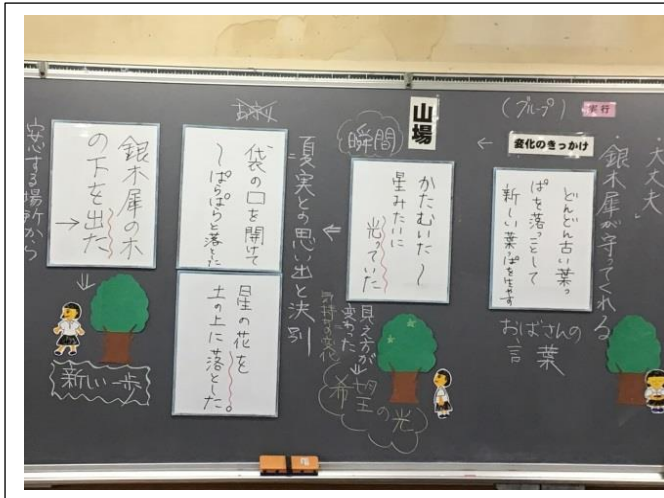 (グループ)
実行
変化のきっかけ
・大丈夫
・銀木犀が守ってくれる
どんどん古い葉っ
ぱを落っことして
新しい葉っぱを生やす
おばさんの
言葉
←
山場
瞬間
かたむいた〜
星みたいに
光っていた
見え方が
変わった
気持ちの変化
希望の光
←
夏実との思い出と決別
袋の口を開けて
〜ぱらぱらと落とした
星の花を
土の上に落とした。
銀木犀の木
の下を出た
→
安心する場所から
新しい一歩